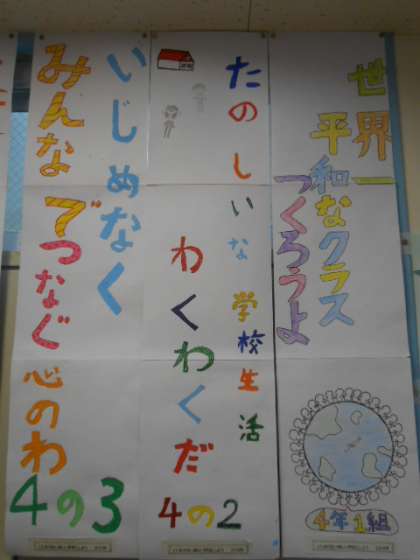 世界一
平和なクラス
つくろうよ
4年1組
たのしいな学校生活
わくわくだ
4の2
いじめなく
みんなでつなぐ心のわ
4の3